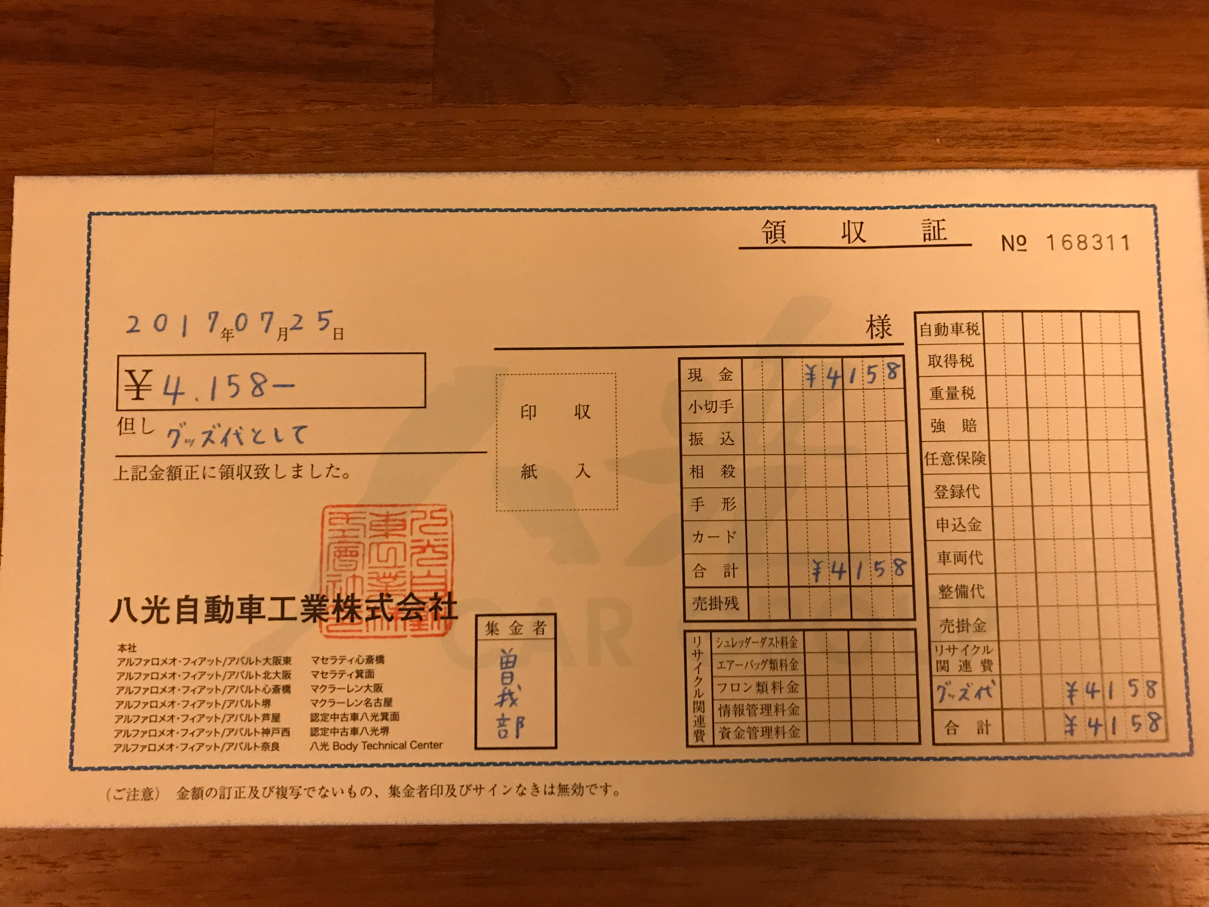 領収証
№ 168311
2017年07月25日
様
¥4.158-
但し グッズ代として
上記金額正に領収致しました。
印収
紙入
現金 ¥4158
小切手
振込
相殺
手形
カード
合計 ¥4158
売掛残
リサイクル関連費
シュレッダーダスト料金
エアーバッグ類料金
フロン類料金
情報管理料金
資金管理料金
自動車税
取得税
重量税
強賠
任意保険
登録代
申込金
車両代
整備代
売掛金
リサイクル
関連費
グッズ代 ¥4158
合計 ¥4158
八光自動車工業株式会社
本社
アルファロメオ・フィアット/アバルト大阪東 マセラティ心斎橋
アルファロメオ・フィアット/アバルト北大阪 マセラティ箕面
アルファロメオ・フィアット/アバルト心斎橋 マクラーレン大阪
アルファロメオ・フィアット/アバルト堺 マクラーレン名古屋
アルファロメオ・フィアット/アバルト芦屋 認定中古車八光箕面
アルファロメオ・フィアット/アバルト神戸西 認定中古車八光堺
アルファロメオ・フィアット/アバルト奈良 八光 Body Technical Center
集金者
曽我部
(ご注意) 金額の訂正及び複写でないもの、集金者印及びサインなきは無効です。